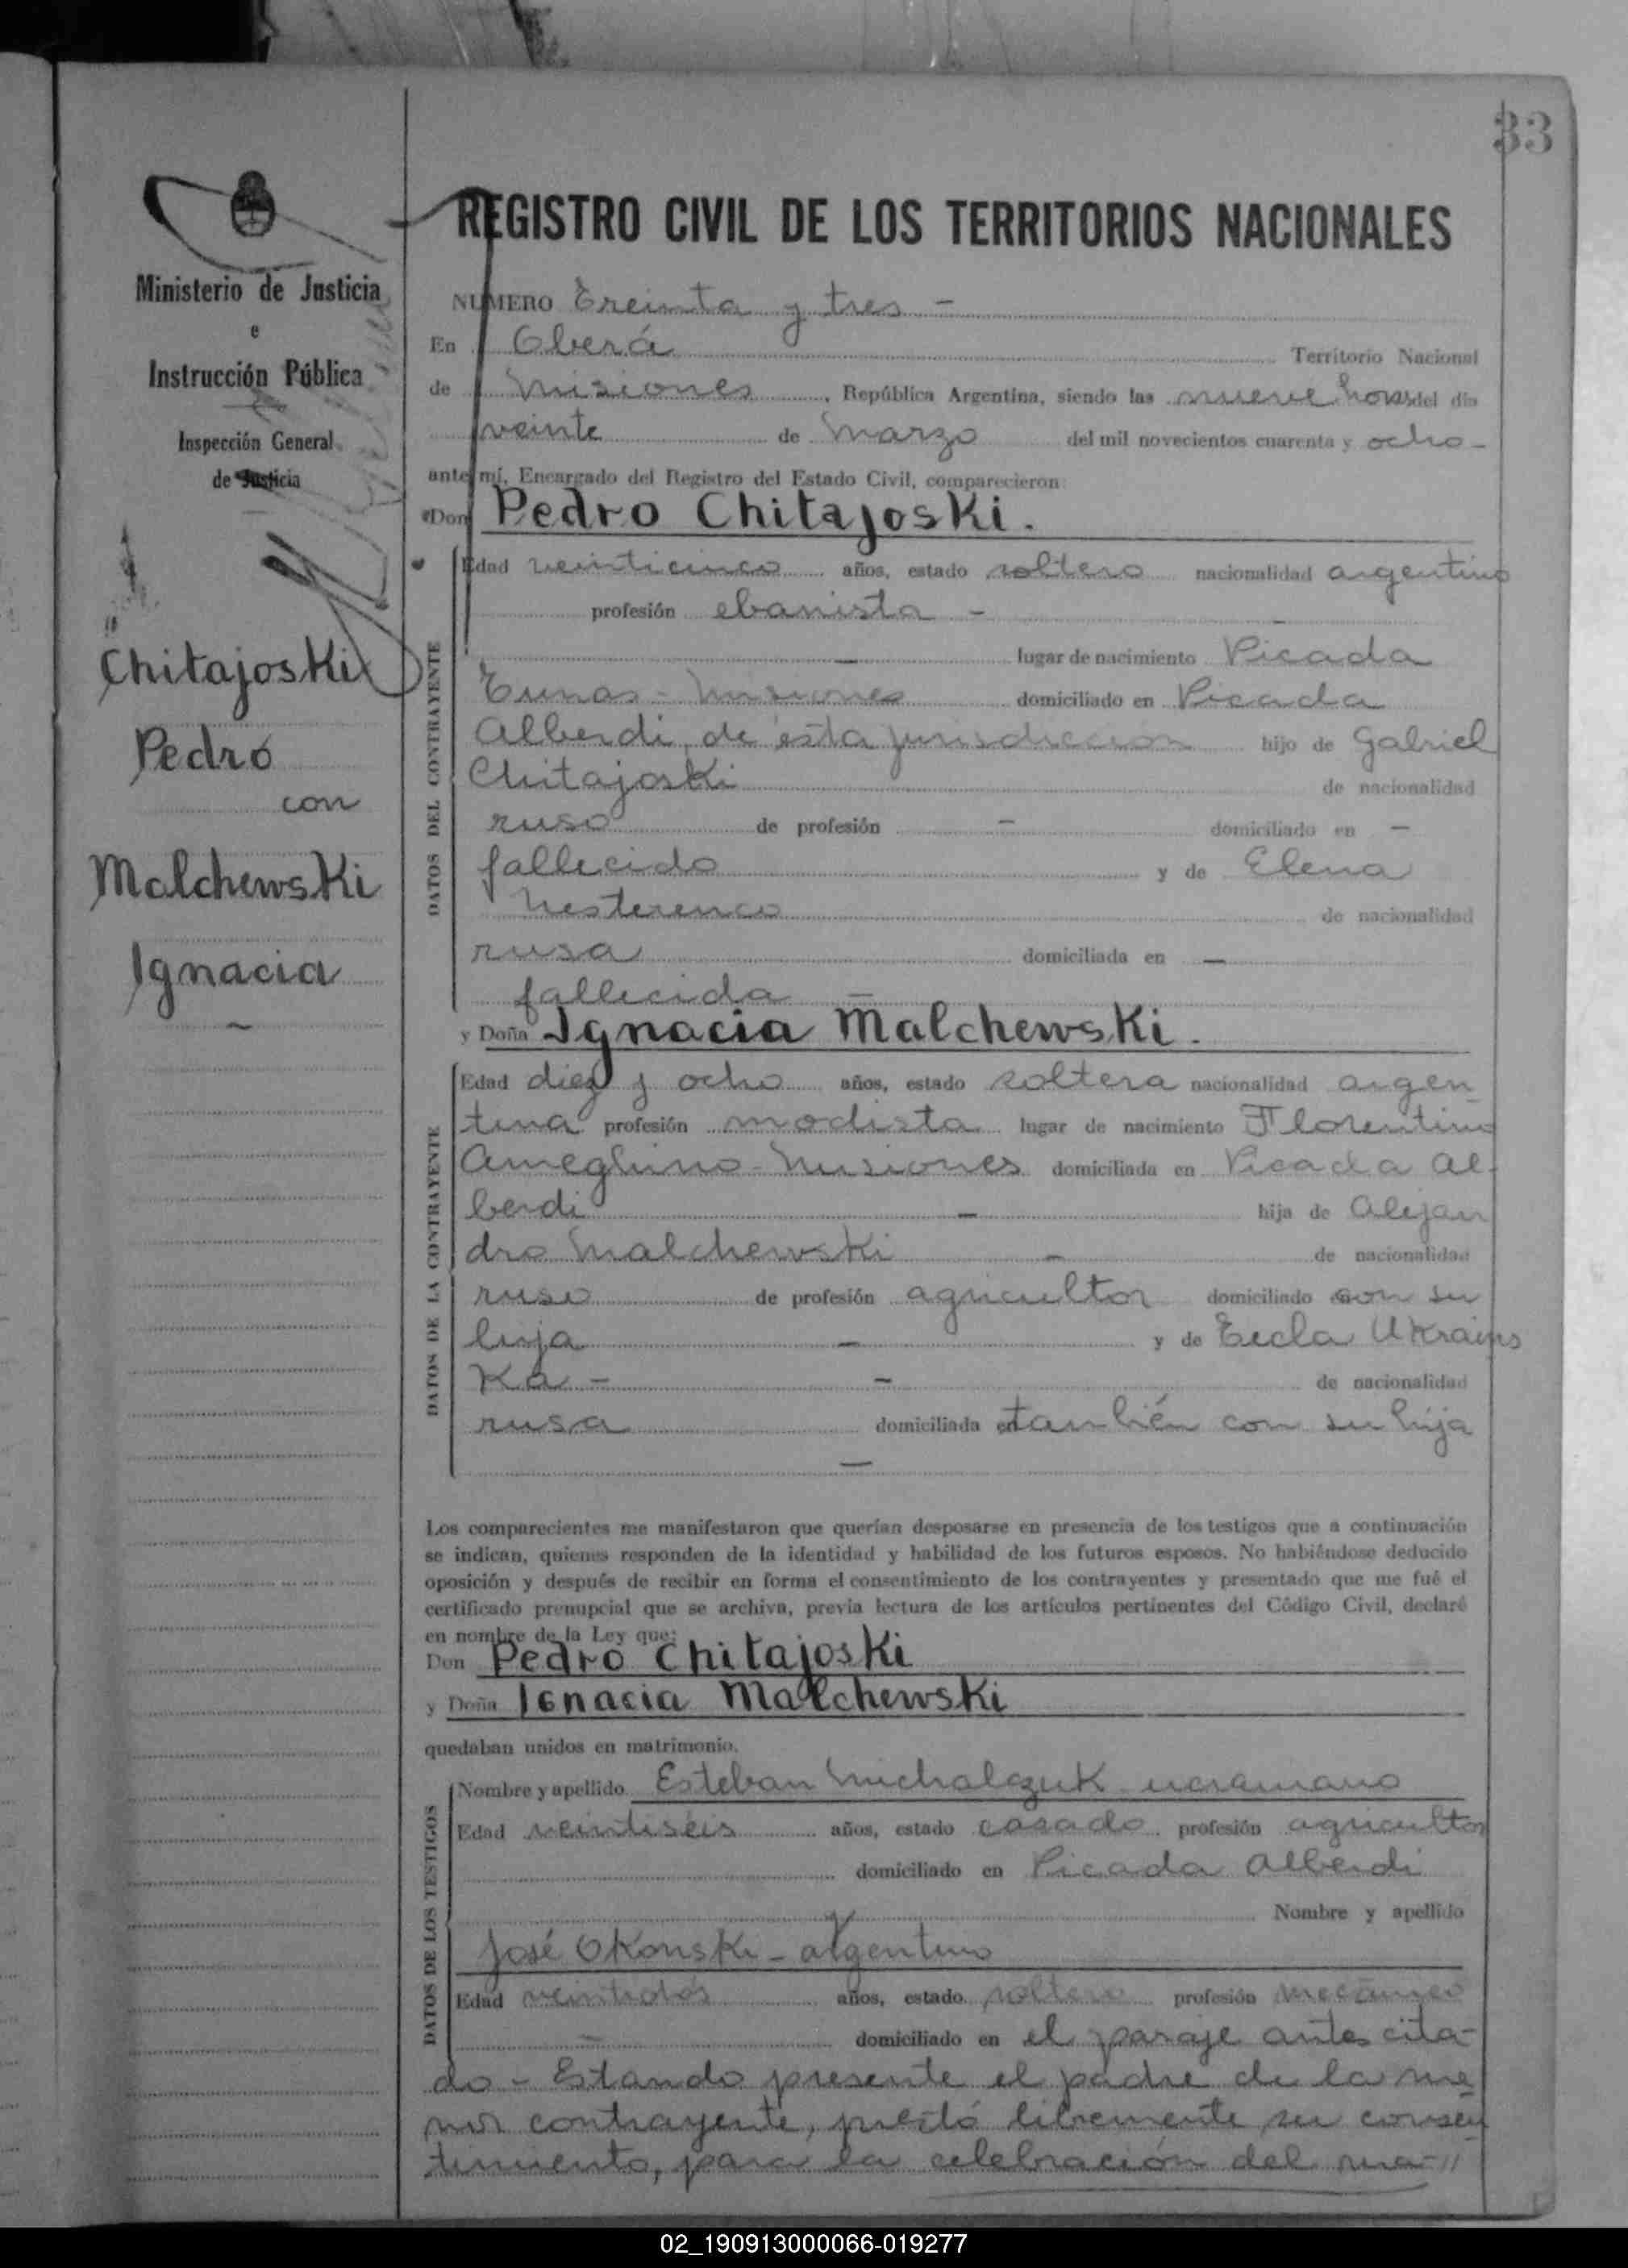 33
Ministerio de Justicia
e
Instrucción Pública
Inspección General
de Justicia
Chitajoski
Pedro
con
Malchewski
Ignacia
REGISTRO CIVIL DE LOS TERRITORIOS NACIONALES
NUMERO Treinta y tres -
En Oberá Territorio Nacional
de Misiones, República Argentina, siendo las nueve horas del día
veinte de Marzo del mil novecientos cuarenta y ocho -
ante mí, Encargado del Registro del Estado Civil, comparecieron:
Don Pedro Chitajoski.
DATOS DEL CONTRAYENTE
Edad veinticinco años, estado soltero nacionalidad argentino
profesión ebanista -
- lugar de nacimiento Picada
Tunas - Misiones domiciliado en Picada
Alberdi, de ésta jurisdicción hijo de Gabriel
Chitajoski de nacionalidad
ruso de profesión - domiciliado en -
fallecido y de Elena
Nesterenco de nacionalidad
rusa domiciliada en -
fallecida -
y Doña Ignacia Malchewski.
DATOS DE LA CONTRAYENTE
Edad diez y ocho años, estado soltera nacionalidad argen
tina profesión modista lugar de nacimiento Florentino
Ameghino - Misiones domiciliada en Picada Al-
berdi - hija de Alejan
dro Malchewski - de nacionalidad
ruso de profesión agricultor domiciliado con su
hija - y de Tecla Ukrains
Ka - - de nacionalidad
rusa domiciliada en también con su hija
-
Los comparecientes me manifestaron que querían desposarse en presencia de los testigos que a continuación
se indican, quienes responden de la identidad y habilidad de los futuros esposos. No habiéndose deducido
oposición y después de recibir en forma el consentimiento de los contrayentes y presentado que me fué el
certificado prenupcial que se archiva, previa lectura de los artículos pertinentes del Código Civil, declaré
en nombre de la Ley que:
Don Pedro Chitajoski
y Doña Ignacia Malchewski
quedaban unidos en matrimonio.
DATOS DE LOS TESTIGOS
Nombre y apellido Esteban Michalczuk ucraniano
Edad veintiséis años, estado casado profesión agricultor
domiciliado en Picada Alberdi
y Nombre y apellido
José Okonski - argentino
Edad veintidós años, estado soltero profesión mecánico
- domiciliado en el paraje antes cita-
do - Estando presente el padre de la me
nor contrayente, prestó libremente su consen
timiento, para la celebración del ma-//
02_190913000066-019277